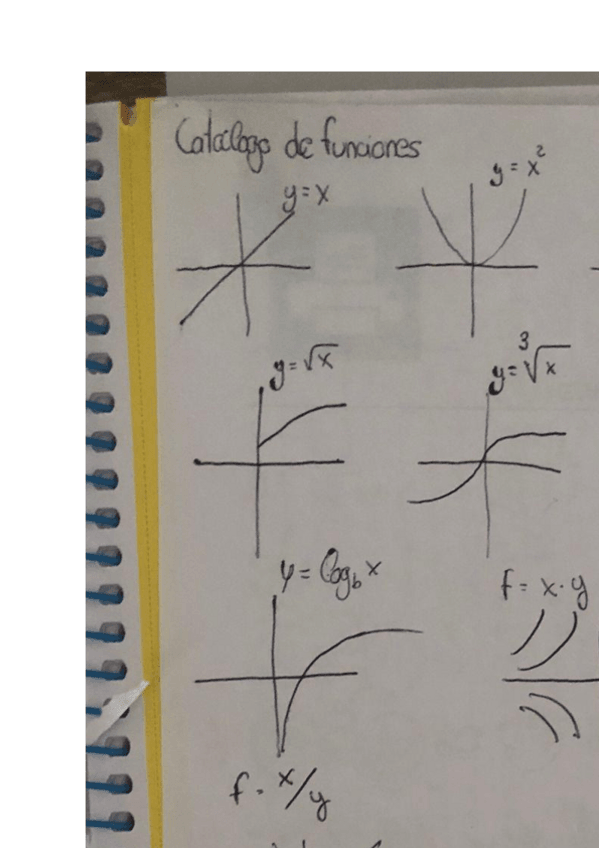 Catálogo de funciones
y = x
y = x²
y = √x
y = ∛x
y = log_b x
f = x · y
f = x/y